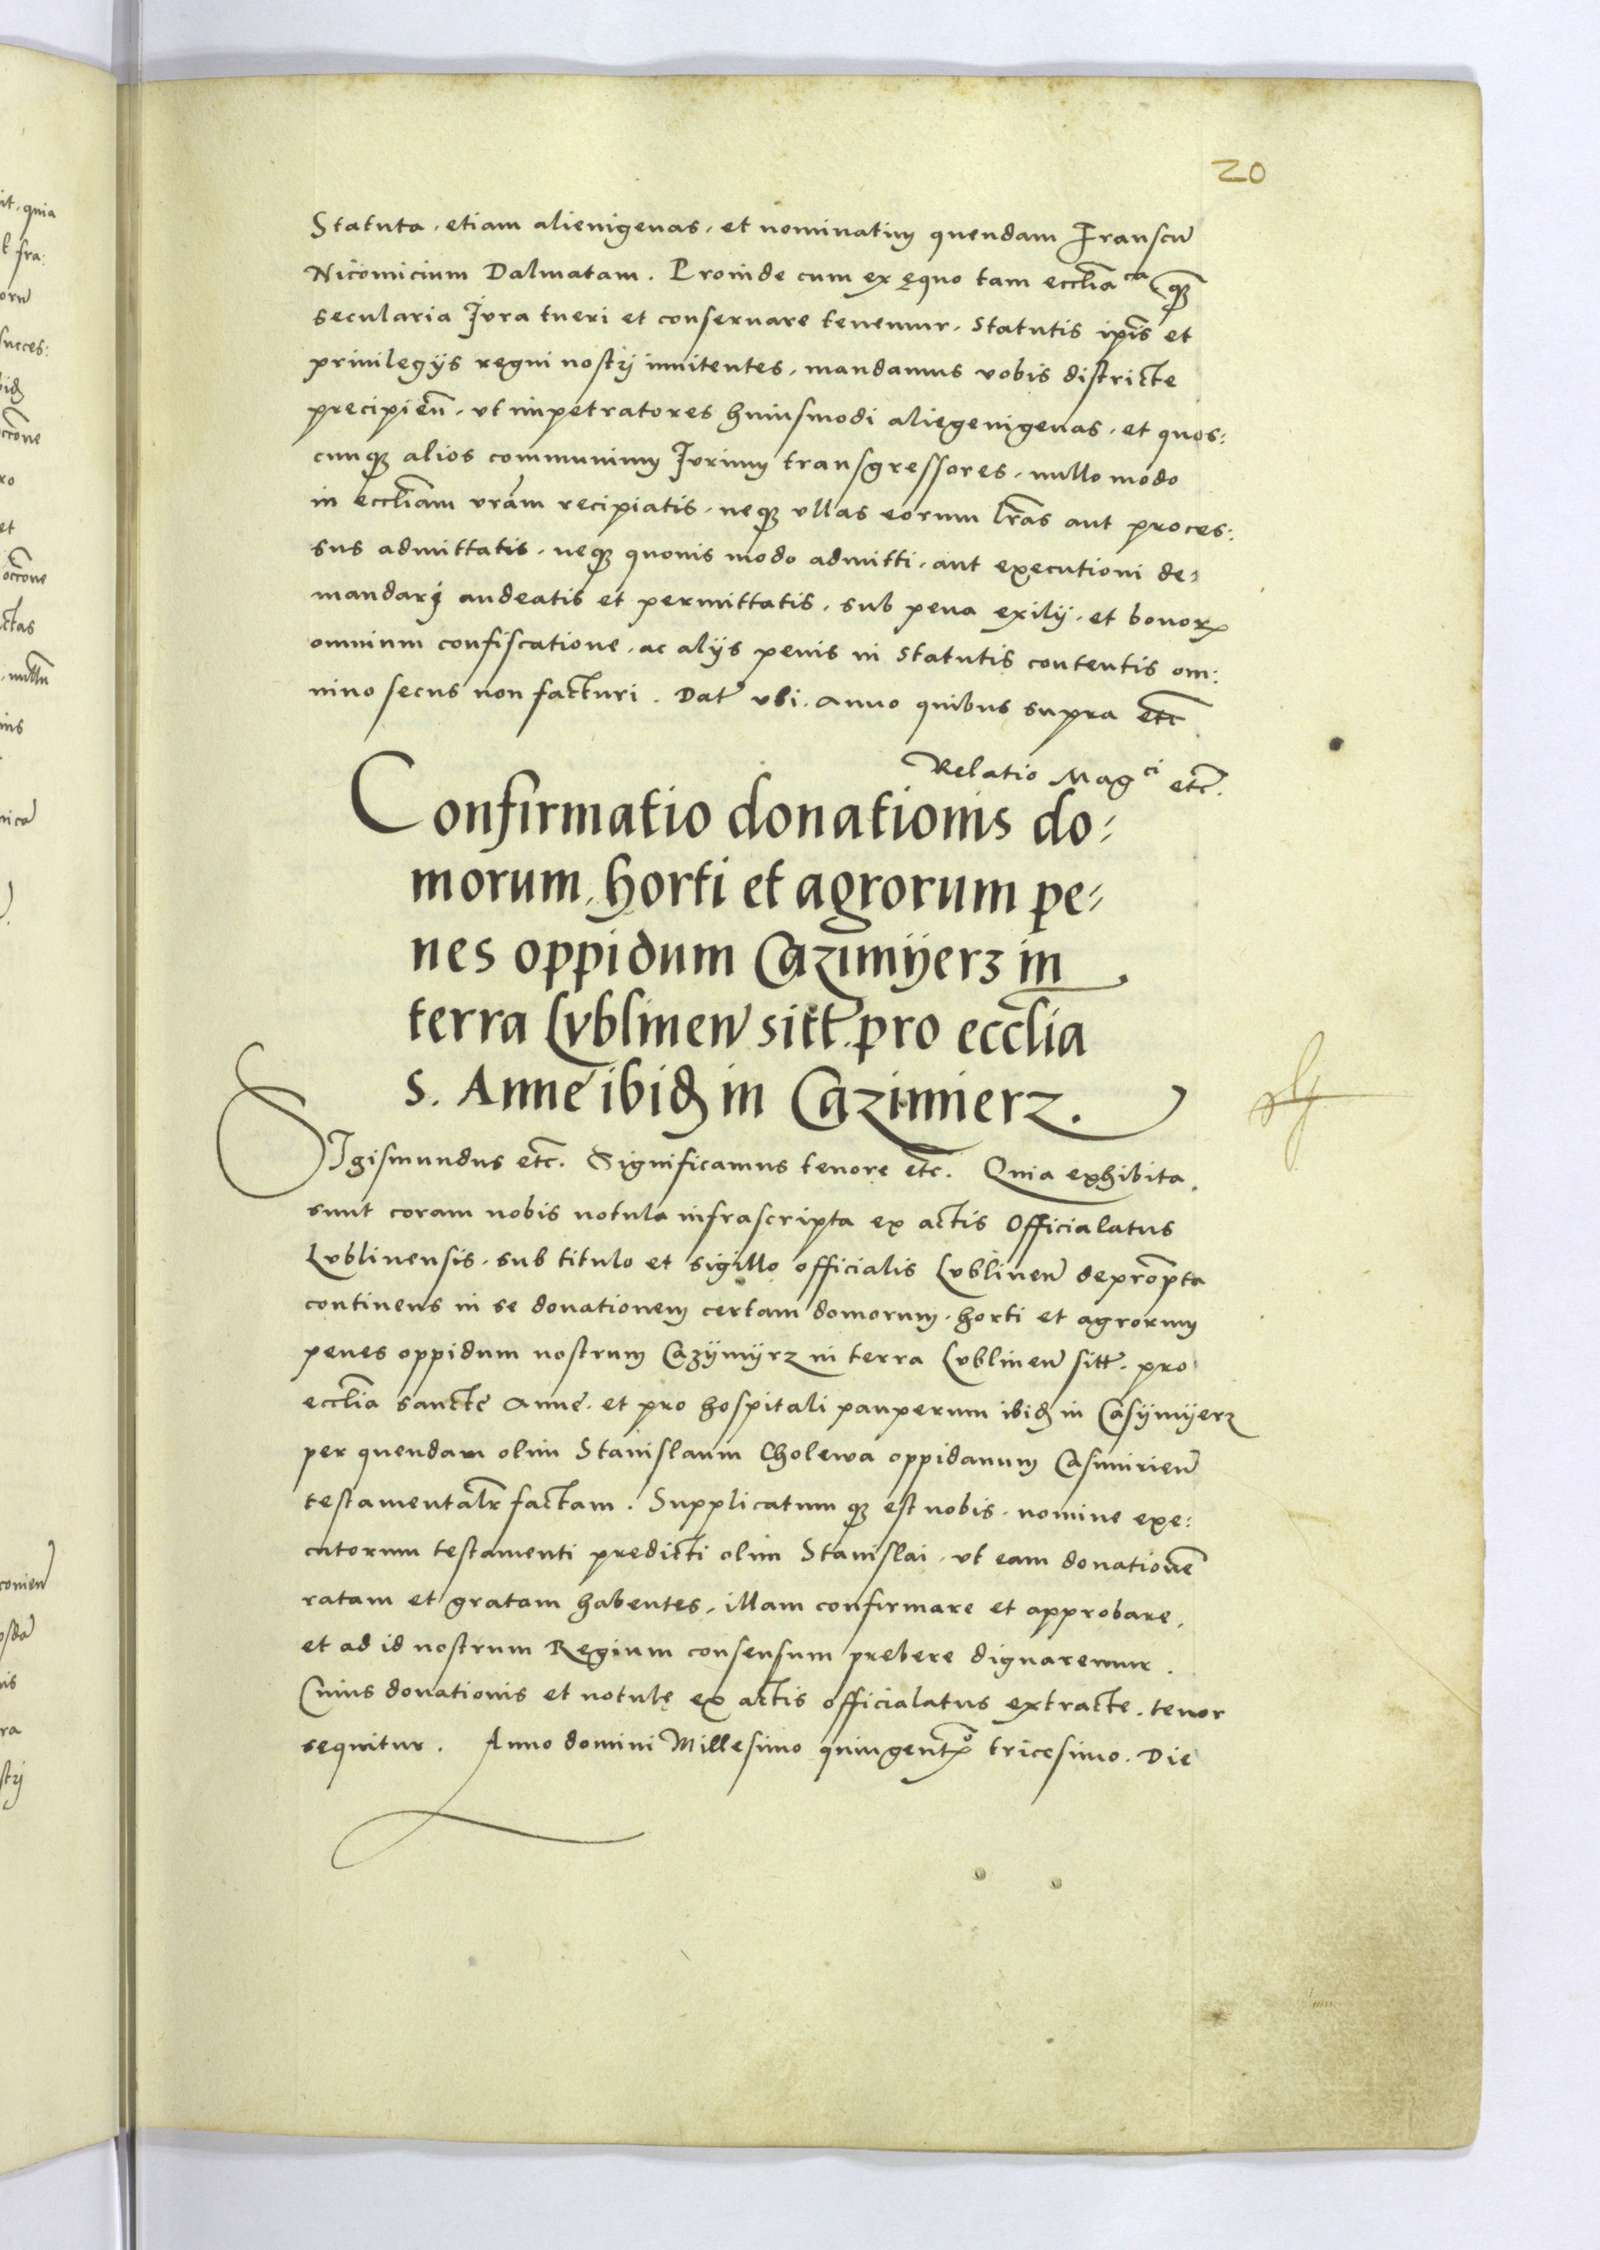 20
Statuta, etiam alienigenas, et nominatim quendam Franscũ
Nicomicium Dalmatam. Proinde cum ex ęquo tam ecclia ca qȝ
secularia Jura tueri et conseruare tenemur, Statutis ipĩs et
priuilegijs regni nostrj innitentes, mandamus vobis districte
precipieñ, vt impetratores huiusmodi aliegenigenas, et quos:
cunqȝ alios communium Jurium transgressores, nullo modo
in eccliam vrãm recipiatis, neqȝ vllas eorum lrãs aut proces:
sus admittatis, neqȝ quouis modo admitti, aut executioni de-
mandarj audeatis et permittatis, sub pena exilij, et bonorꝝ
omnium confiscatione, ac alijs penis in Statutis contentis om:
nino secus non facturi. Dat̃ vbi. Anno quibus supra etc̃
Relatio Magci etc̃.
Confirmatio donationis do:
morum, horti et agrorum pe-
nes oppidum Cazimÿerz in
terra Lvblineñ sitt̃. pro ecclia
S. Anne ibiđ in Cazimierz.
SIgismundus etc̃. Significamus tenore etc̃. Quia exhibita
sunt coram nobis notula infrascripta ex actis Officialatus
Lvblinensis, sub titulo et sigillo officialis Lvblineñ deprõpta
continens in se donationem certam domorum, horti et agrorum
penes oppidum nostrum Cazÿmÿrz in terra Lvblineñ sitt̃. pro
ecclia sancte Anne, et pro hospitali pauperum ibiđ in Casÿmÿerz
per quendam olim Stanislaum Cholewa oppidanum Casimirieñ
testamentalr̃ factam. Supplicatum qȝ est nobis, nomine exe:
cutorum testamenti predicti olim Stanislai, vt eam donationẽ
ratam et gratam habentes, illam confirmare et approbare,
et ad id nostrum Regium consensum prebere dignaremur.
Cuius donationis et notulę ex actis officialatus extracte, tenor
sequitur. Anno domini Millesimo quingentꝭo tricesimo. Die